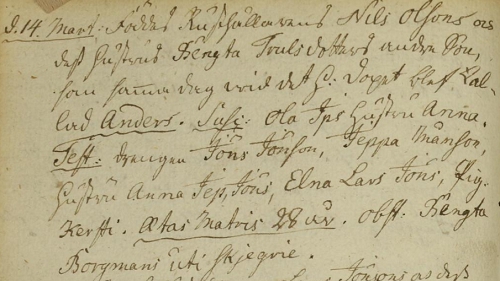 D. 14. Mart: Föddes Rusthållarens Nils Olsons och
desz Hustrus Bengta Truls dotters andre Son,
som samma dag wid det H: Dopet blef kal-
lad Anders. Susc: Ola Ips Hustru Anna.
Test: drengen Jöns Jönson, Jeppa Månson,
Hustru Anna Jep, Jöns, Elna Lars Jöns, Pig.
Kersti. Ætas Matris 28 år. Obst: Bengta
Borgmans uti Skjegrie.